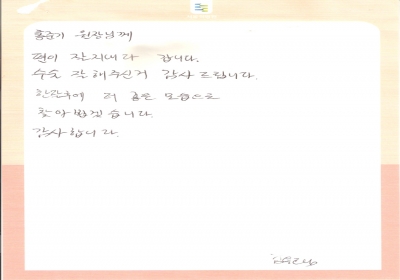 홍준기 원장님께
편이 잘지내다 갑니다.
수술 잘 해주신거 감사 드립니다.
한달후에 더 좋은 모습으로
찾아 뵙겠습니다.
감사합니다.